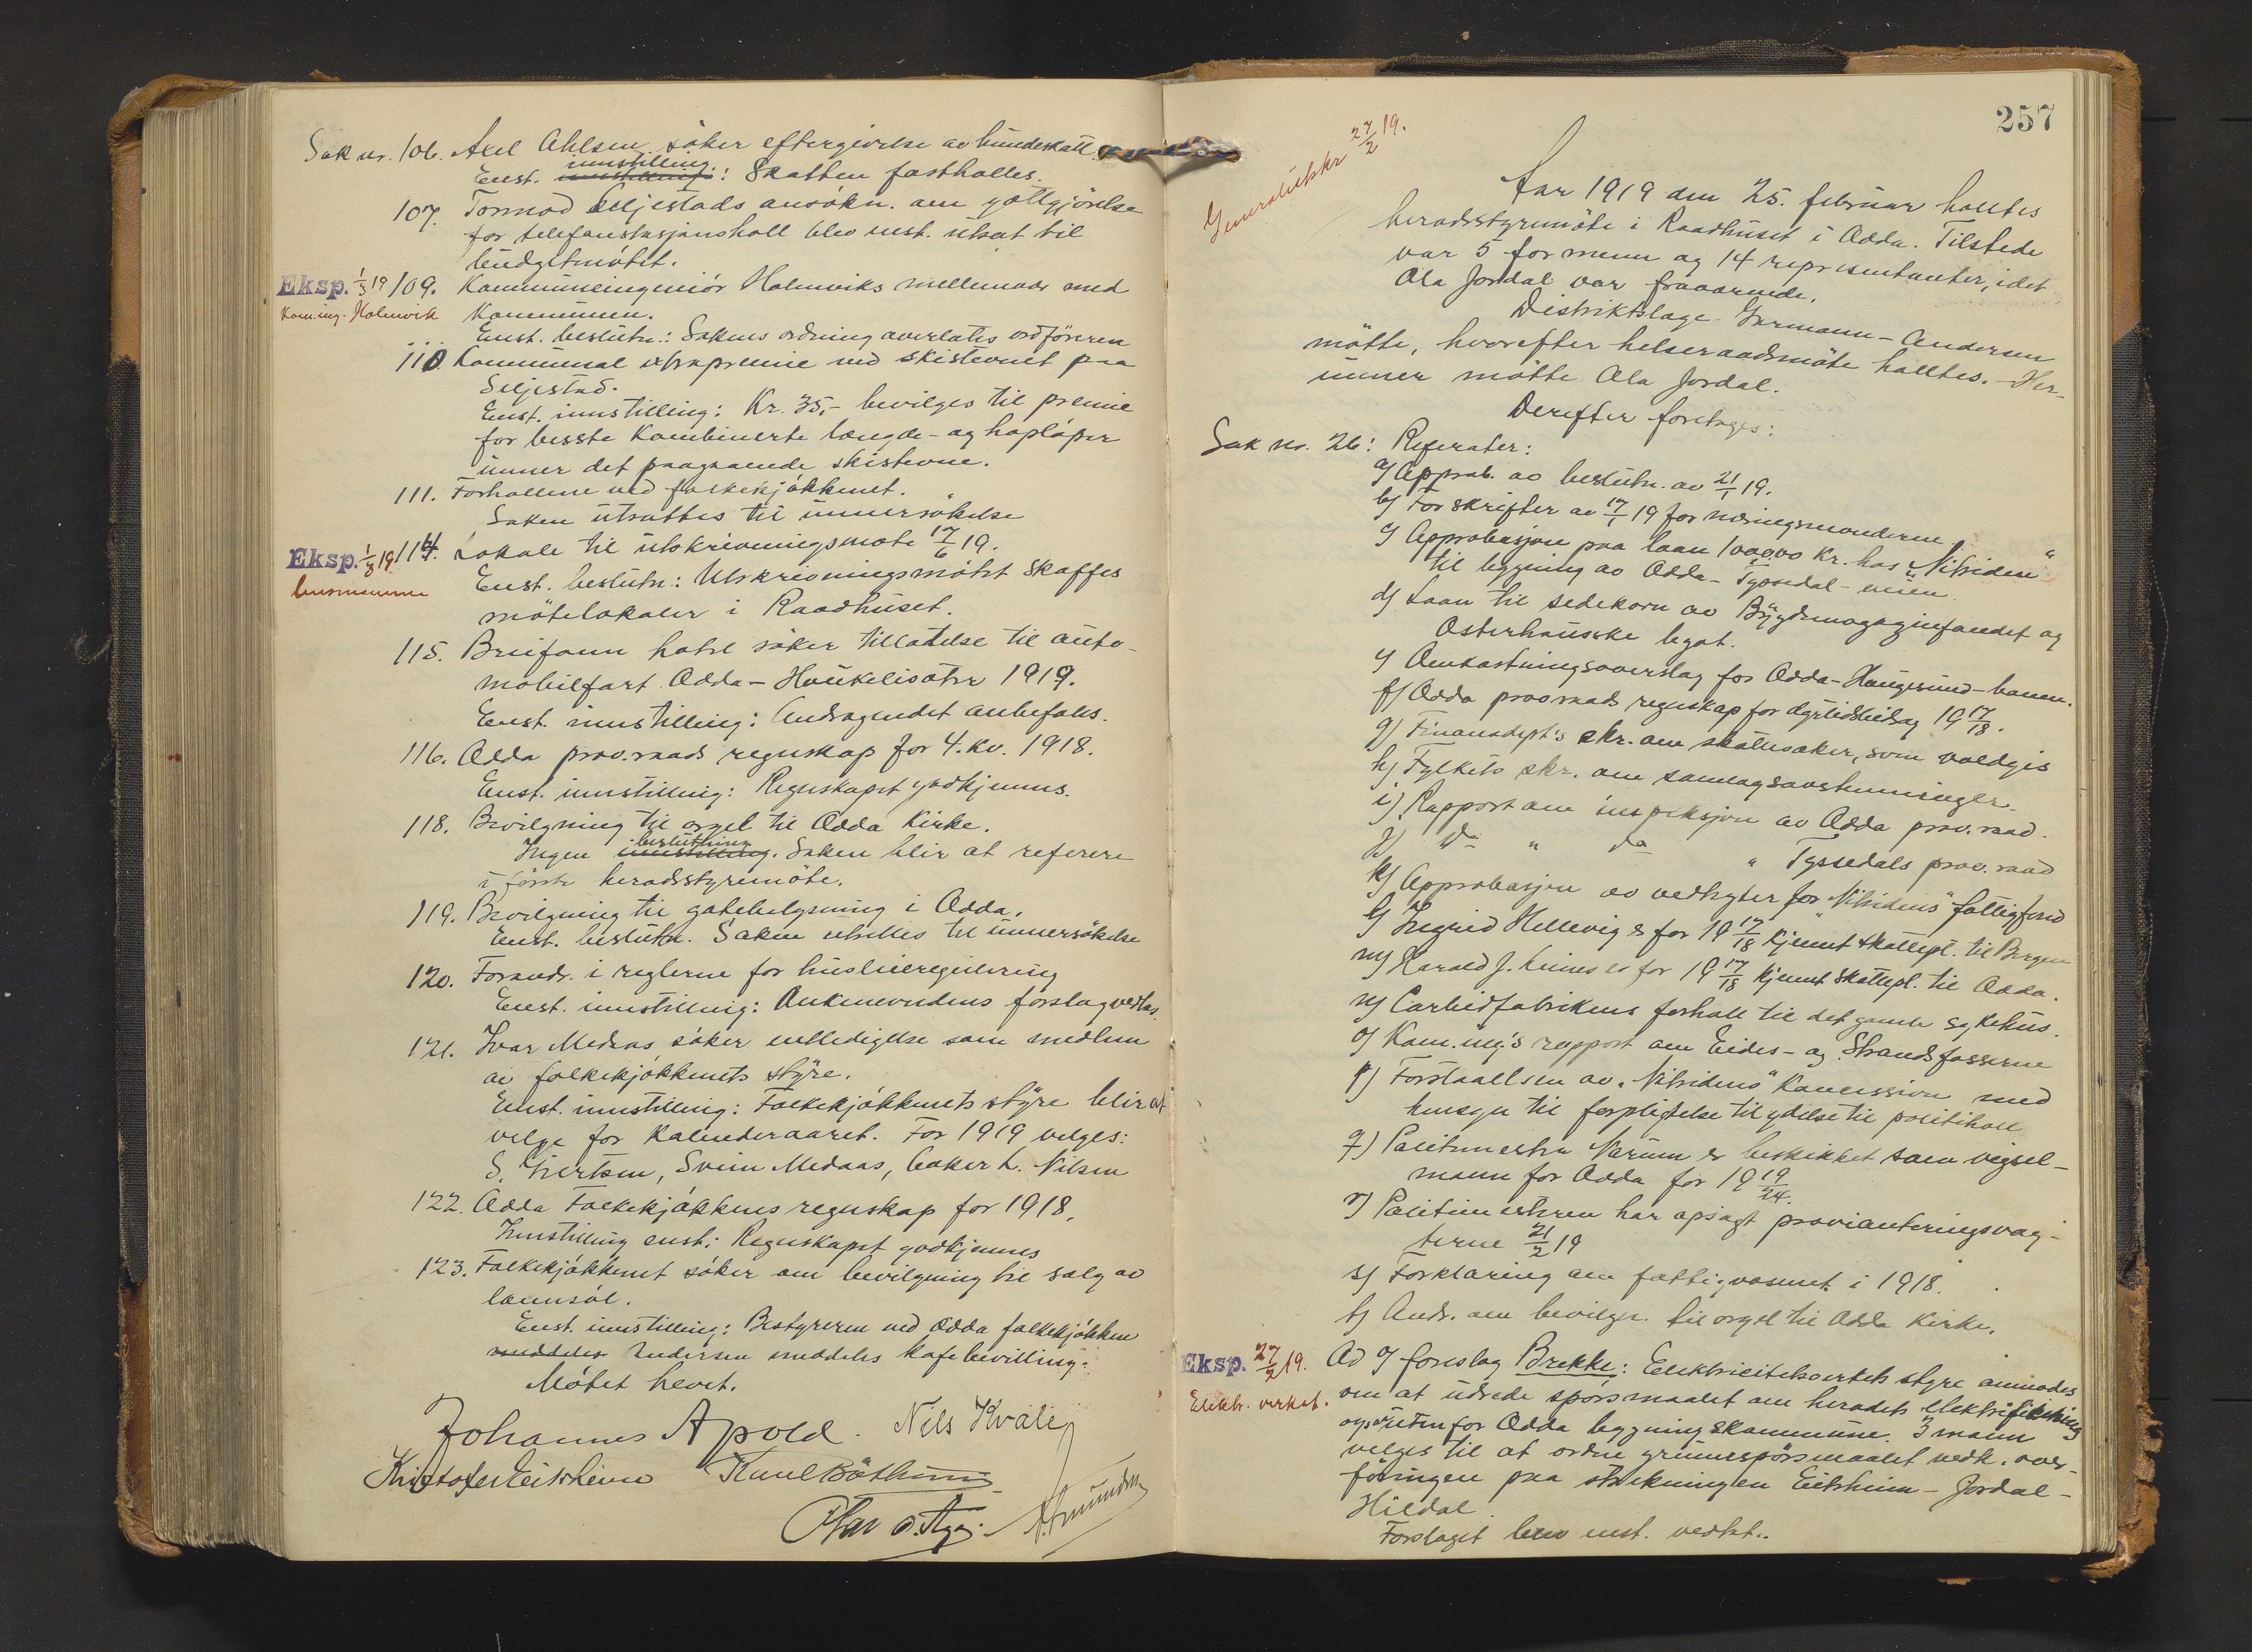 Sak nr. 106. Axel Ahlsen söker eftergivelse av hundeskatt.
innstilling
Enst. innstilling: Skatten fastholles.
107. Tormod Seljestads ansökn. om gottgjörelse
for telefonstasjonsholl blev enst. utsat til
budgetmötet.
Eksp. 1/3 19 109. Kommuneingeniör Holmviks mellemvær med
Kom.ing. Holmvik Kommunen.
Enst. beslutn.: Sakens ordning overlates ordföreren
110. Kommunal extrapremie ved skistevnet paa
Seljestad.
Enst. innstilling: Kr. 35,- bevilges til premie
for beste kombinerte længde- og hopløper
unner det paagaaende skistevne.
111. Forhollene ved folkekjökkenet.
Saken utsættes til unnersökelse
Eksp. 1/3 19 114. Lokale til utskrivningsmøte 17/6 19.
lensmannen Enst. beslutn.: Utskrivningsmötet skaffes
mötelokaler i Raadhuset.
115. Breifonn hotel söker tillatelse til auto-
mobilfart Odda - Haukelisæter 1919.
Enst. innstilling: Andragendet anbefales.
116. Odda prov.raads regnskap for 4. kv. 1918.
Enst. innstilling: Regnskapet godkjennes.
118. Bevilgning til orgel til Odda kirke.
beslutning
Ingen innstilling. Saken blir at referere
i förste heradsstyremöte.
119. Bevilgning til gatebelysning i Odda.
Enst. beslutn. Saken utstilles til unnersökelse
120. Forandr. i reglerne for husleieregulering
Enst. innstilling: Ankenevndens forslag vedtas.
121. Ivar Medaas söker entledigelse som medlem
av folkekjökkenets styre.
Enst. innstilling: Folkekjökkenets styre blir at
velge for kalenderaaret. For 1919 velges:
S. Gjertsen, Svein Medaas, baker L. Nilsen
122. Odda Folkekjökkens regnskap for 1918,
Innstilling enst: Regnskapet godkjennes
123. Folkekjökkenet söker om bevilgning til salg av
lannsöl.
Enst. innstilling: Bestyreren ved Odda folkekjökken
meddeles Andersen meddeles kafebevilling.
Mötet hevet.
Johannes Apold. Nils Kvale
Kristofer Eitrheim Karl Böthun
Olav O. Aga. A. Amundsen
257
Generalutskr 27/2 19.
Aar 1919 den 25. februar holltes
heradsstyremöte i Raadhuset i Odda. Tilstede
var 5 formenn og 14 representanter, idet
Ola Jordal var fraværende.
Distriktslæge Germann-Andersen
mötte, hvorefter helseraadsmöte holltes. - Her-
unner mötte Ola Jordal.
Derefter foretoges:
Sak nr. 26: Referater:
a) Approb. av beslutn. av 21/1 19.
b) Forskrifter av 17/1 19 for næringsmonderne.
c) Approbasjon paa laan 100,000 kr. hos "Nitriden"
til bygning av Odda-Tyssedal-veien.
d) Laan til sedekorn av Bygdemagasinfondet og
Osterhausske legat.
e) Omkostningsoverslag for Odda-Haugesund-banen.
f) Odda provraads regnskap for dyrtidsbidrag 19 17/18.
g) Finansdept's skr. om skattesaker, som voldgis
h) Fylkets skr. om samlagsavstemninger.
i) Rapport om inspeksjon av Odda prov.raad.
j) do " do " Tyssedals prov.raad
k) Approbasjon av vedtegter for "Nitridens" fattigfond
l) Ingrid Hellevig er for 19 17/18 kjennt skattepl. til Bergen
m) Harald J. Leines er for 19 17/18 kjennt skattepl. til Odda.
n) Carbidfabrikens forholl til det gamle sykehus.
o) Kom.ing's rapport om Eides- og Strandsfossene
p) Forstaaelsen av "Nitridens" koncession med
hensyn til forpligtelse til ydelse til politiholl
q) Politimester Narum er beskikket som vigsel-
mann for Odda for 19 19/24.
r) Politimesteren har opsagt provianteringsvag-
terne 21/2 19
s) Forklaring om fattigvæsenet i 1918.
t) Andr. om bevilgn. til orgel til Odda Kirke.
Eksp. 27/2 19. Ad o) foreslog Brekke: Elektricitetsverkets styre anmodes
Elektr. verket. om at utrede spörsmaalet om heradets elektrificering
ogsaa utenfor Odda bygningskommune. 3 mann
velges til at ordne grunnspörsmaalet vedk. over-
föringen paa strekningen Eitrheim - Jordal-
Hildal.
Forslaget blev enst. vedtat.